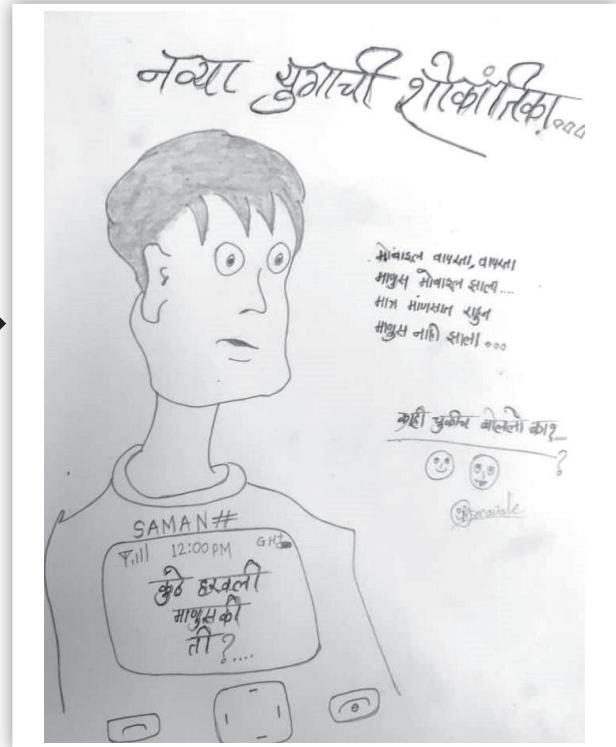 नव्या युगाची शोकांतिका...
मोबाइल वापरता, वापरता
माणुस मोबाइल झाला....
मात्र माणसात राहुन
माणुस नाही झाला...
काही चुकीच बोललो का?...
?
SAMAN#
12:00PM
कुठे हरवली
माणुसकी
ती?....